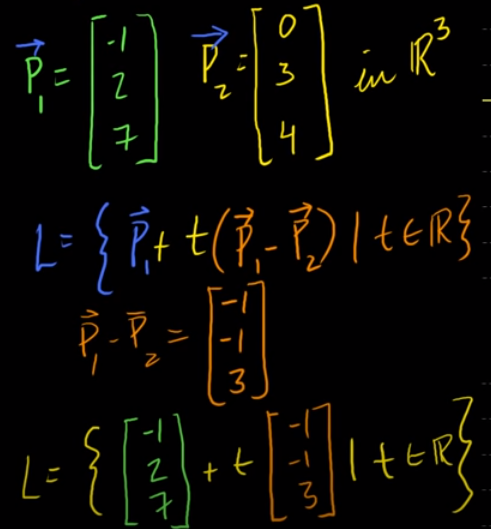 P⃗₁ = [-1 2 7] P⃗₂ = [0 3 4] in ℝ³
L = {P⃗₁ + t(P⃗₁ - P⃗₂) | t ∈ ℝ}
P⃗₁ - P⃗₂ = [-1 -1 3]
L = {[-1 2 7] + t [-1 -1 3] | t ∈ ℝ}